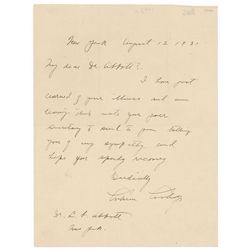 New York August 12 1931
My dear Dr. Abbott:
I have just
learned of your illness and am
leaving this note with your
secretary to send to you telling
you of my sympathy and
hope your speedy recovery
Cordially
Dr. L. F. Abbott
New York.